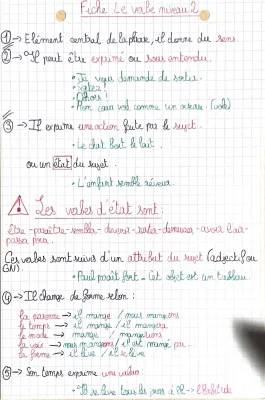 Fiche Le verbe niveau 2
1 → Elément central de la phrase, il donne du sens.
2 → Il peut être exprimé ou sous entendu.
• Je vous demande de sortir.
• Sortez !
• Dehors !
• Mon cœur vole comme un oiseau. (vole)
3 → Il exprime une action faite par le sujet.
• Le chat boit le lait.
ou un état du sujet.
• L'enfant semble rêveur.
Les verbes d'état sont :
être - paraître - sembler - devenir - rester - demeurer - avoir l'air -
passer pour.
Ces verbes sont suivis d'un attribut du sujet (adjectif ou
GN)
• Paul paraît fort - Cet objet est un tableau.
4 → Il change de forme selon :
la personne → il mange / nous mangeons
le temps → il mange / il mangera
le mode → mangeons / mangerions
la voix → nous mangeons / il est mangé par ...
la forme → il lève / il se lève
5 → Son temps exprime une valeur.
• Il se lève tous les jours à → l'habitude